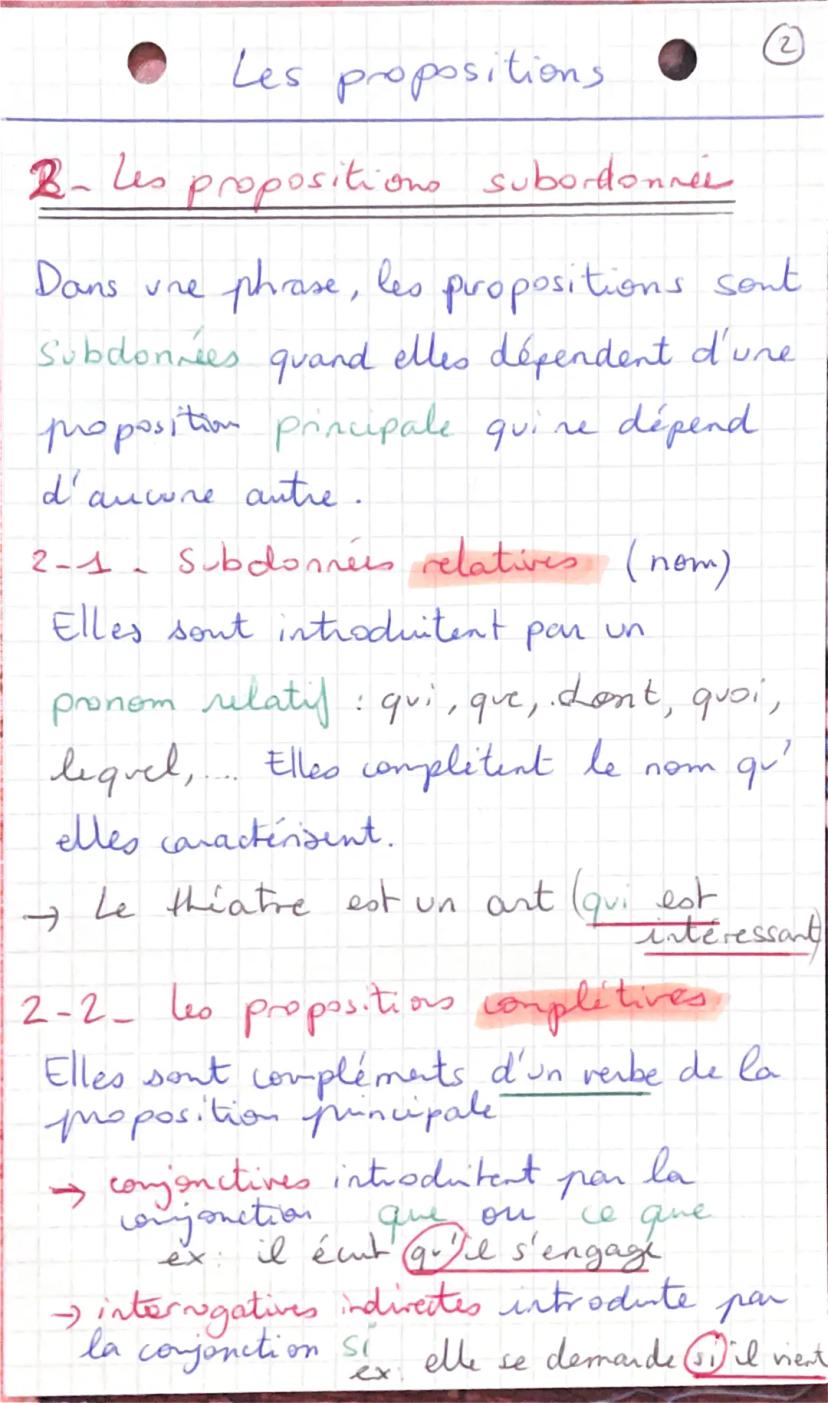 Les propositions
2
2- Les propositions subordonnées
Dans une phrase, les propositions sont
Subdonnées quand elles dépendent d'une
proposition principale qui ne dépend
d'aucune autre.
2-1- Subdonnées relatives (nom)
Elles sont introduitent par un
pronom relatif : qui, que, dont, quoi,
lequel,... Elles complètent le nom qu'
elles caractérisent.
→ Le théatre est un art (qui est
intéressant)
2-2- Les propositions complétives
Elles sont compléments d'un verbe de la
proposition principale
→ conjonctives introduitent par la
conjonction que ou ce que
ex: il écrit qu'il s'engage
→ interrogatives indirectes introduite par
la conjonction si
ex: elle se demande si il vient